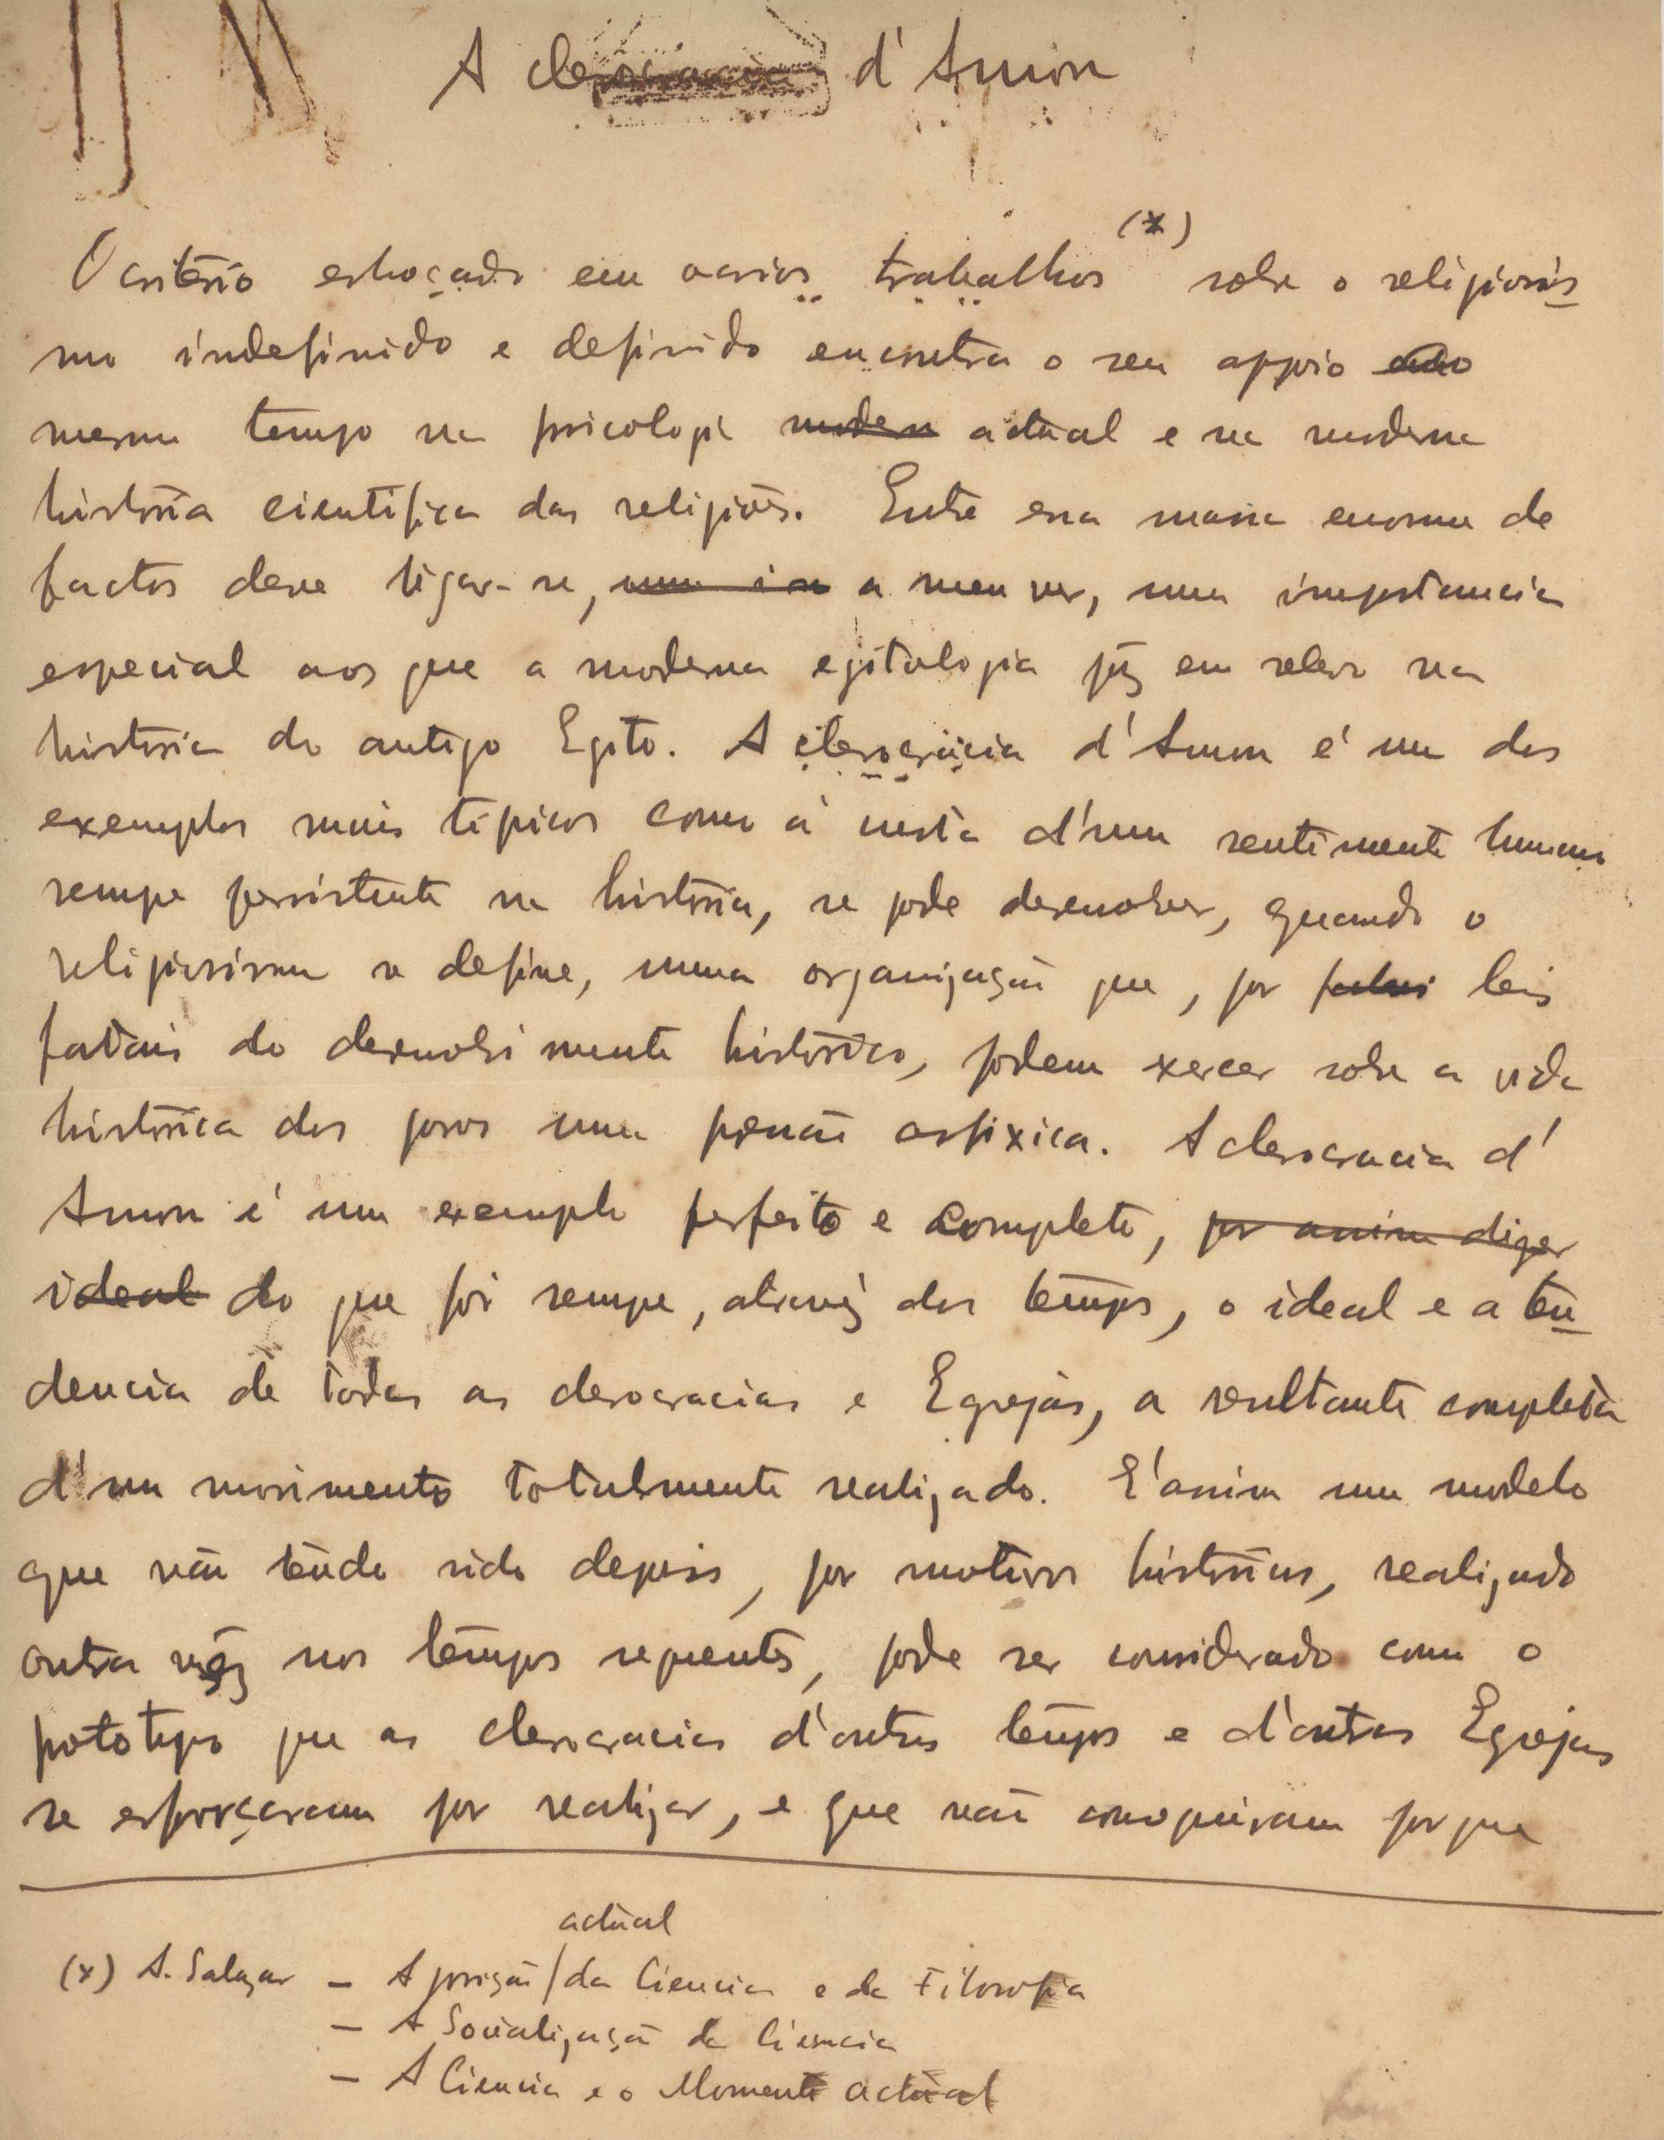 A clerocracia d'Amon
(x)
O criterio esboçado em varios trabalhos sobre o religiosis
mo indefinido e definido encontra o seu appoio ao
mesmo tempo na psicologia modern actual e na moderna
história cientifica das religiões. Entre essa massa enorme de
factos deve ligar-se, a meu ver, uma importancia
especial aos que a moderna egitologia pôz em relevo na
historia do antigo Egito. A clerocracia d'Amon é um dos
exemplos mais tipicos como á custa d'um sentimento humano
sempre persistente na história, se pode desenvolver, quando o
religiosismo se define, numa organização que, por leis
fatais do desenvolvimento histórico, podem exercer sobre a vida
histórica dos povos uma pressão asfixica. A clerocracia d'
Amon é um exemplo perfeito e completo, por assim dizer
ideal do que foi sempre, através dos tempos, o ideal e a ten
dencia de todas as clerocracias e Egrejas, a resultante completa
d'um movimento totalmente realizado. E' assim um modelo
que não tendo sido depois, por motivos históricos, realizado
outra vez nos tempos seguentes, pode ser considerado como o
prototipo que as clerocracias d'outros tempos e d'outras Egrejas
se esforçaram por realizar, e que não conseguiram por que
actual
(x) A. Salazar - A posição / da Ciencia e da Filosofia
- A Socialização da Ciencia
- A Ciencia e o Momento actual